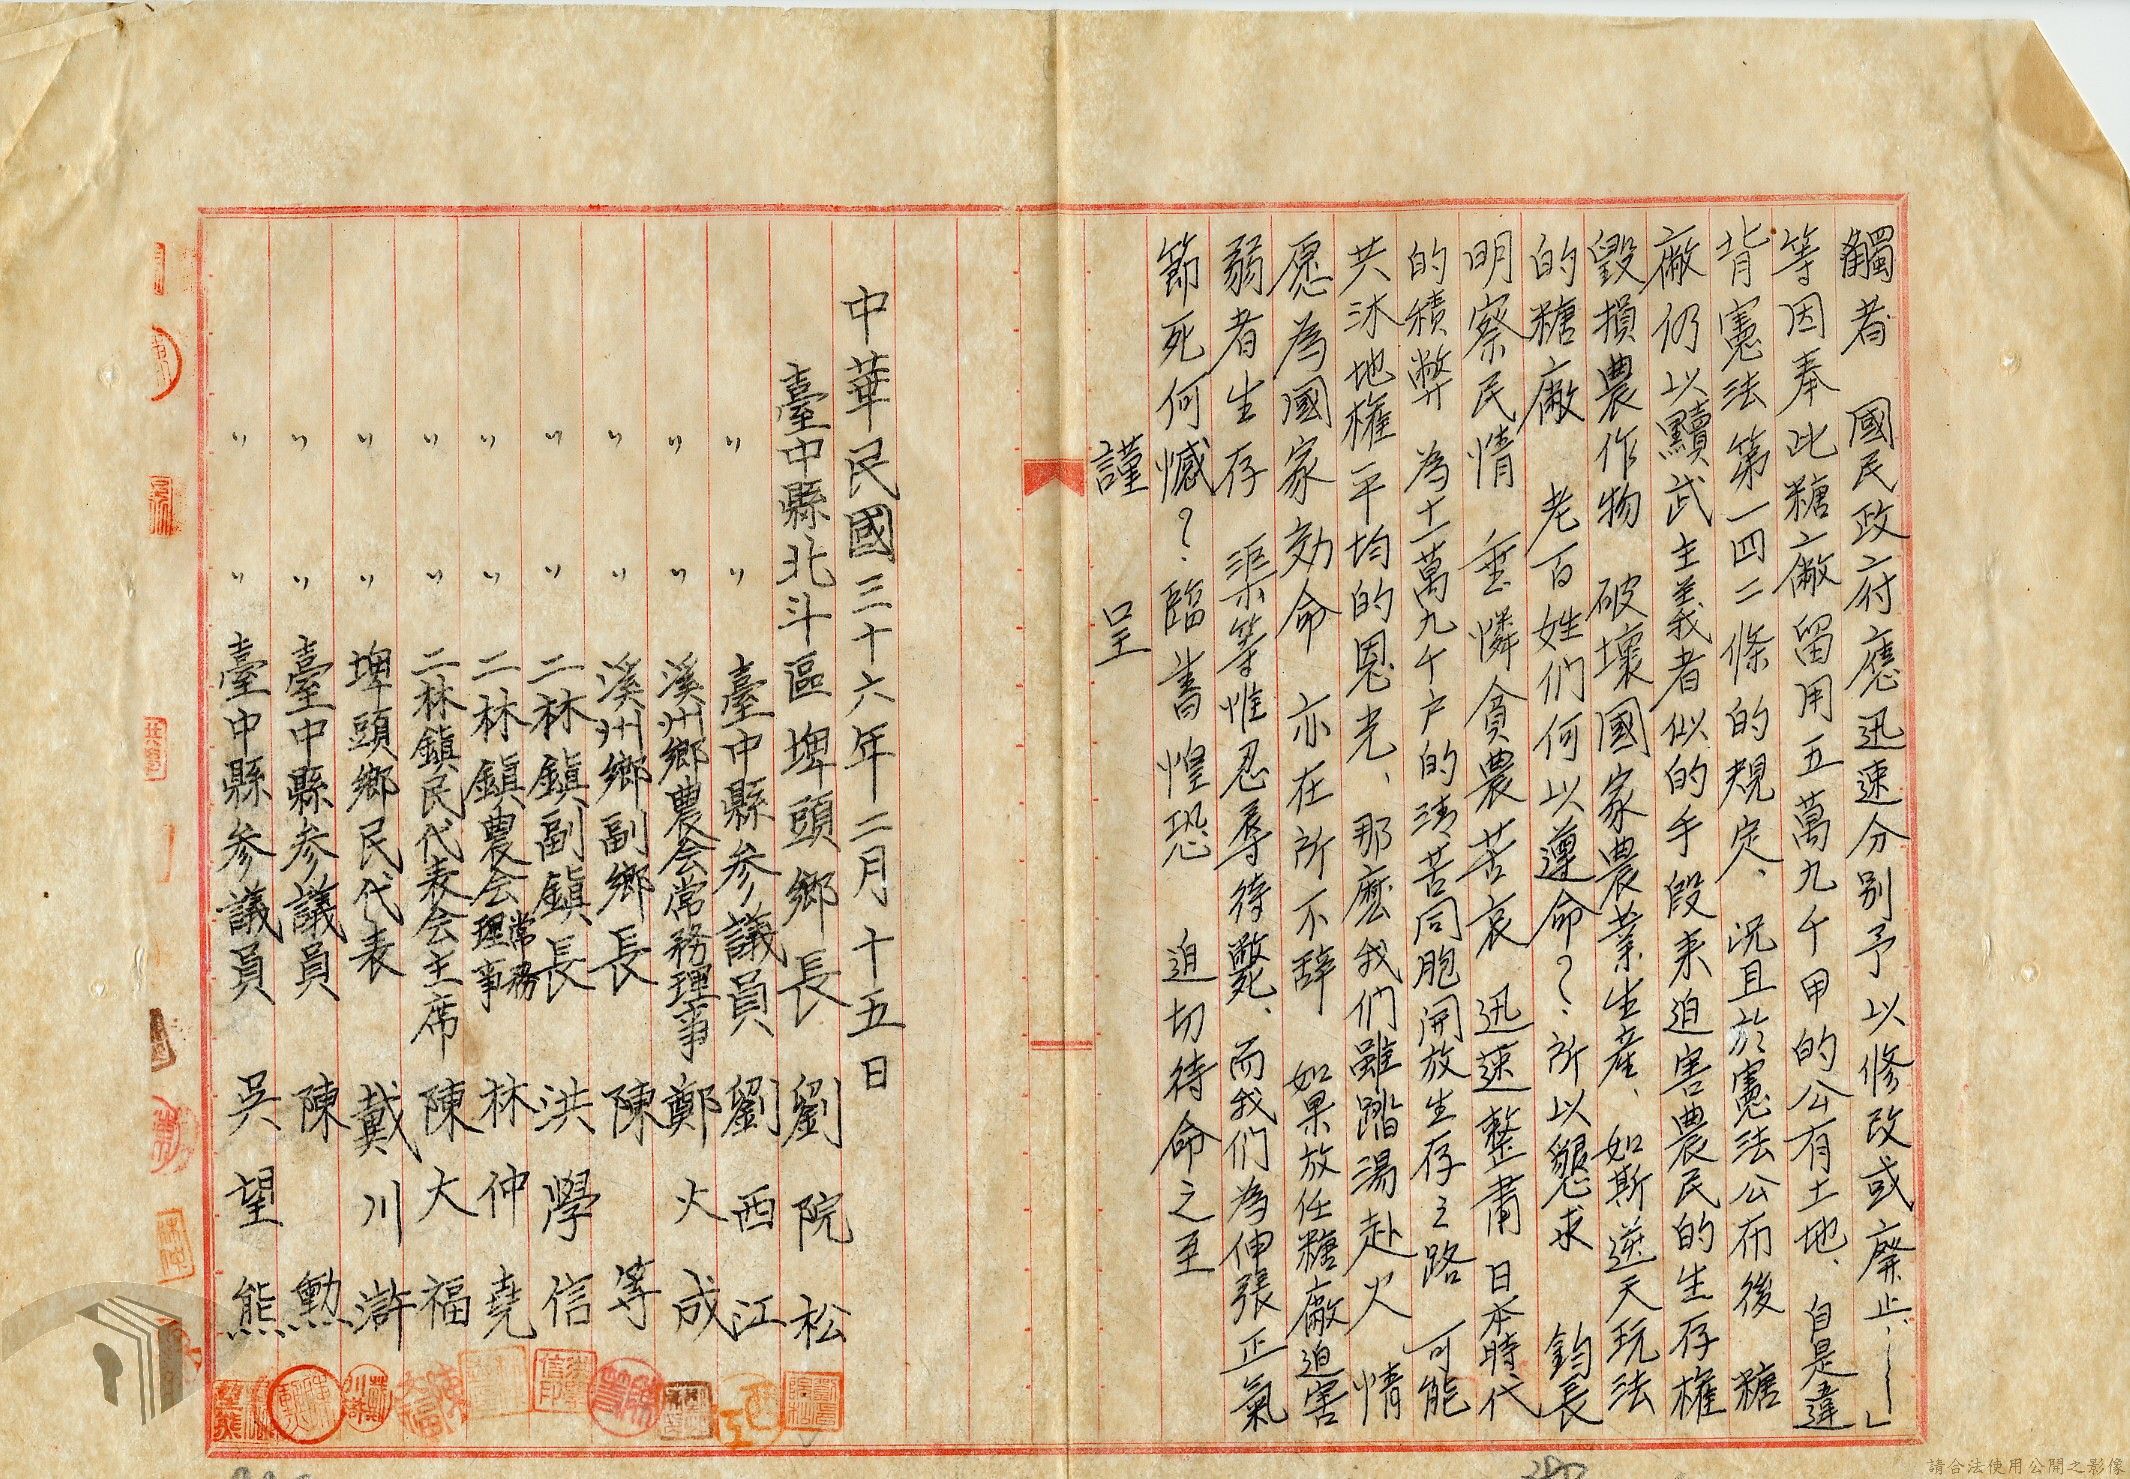 觸者　國民政府應迅速分別予以修改或廢止、……」
等因奉此糖廠留用五萬九千甲的公有土地、自是違
背憲法第一四二條的規定、況且於憲法公布後　糖
廠仍以黷武主義者似的手段来迫害農民的生存權
毀損農作物　破壞國家農業生産、如斯逆天玩法
的糖廠　老百姓们何以遵命？所以懇求　鈞長
明察民情　垂憐貧農苦哀　迅速整肅日本時代
的積弊　為十一萬九千户的清苦同胞開放生存之路　可能
共沐地權平均的恩光、那麽我们雖踏湯赴火　情
愿為國家効命　亦在所不辞　如果放任糖廠迫害
弱者生存　渠等惟忍辱待斃、而我们為伸張正氣
節死何憾？臨書惶恐　迫切待命之至
謹　呈
中華民國三十六年二月十五日
臺中縣北斗區埤頭鄉長　劉院松
〃　〃　臺中縣参議員　劉西江
〃　〃　溪州鄉農会常務理事　鄭火成
〃　〃　溪州鄉副鄉長　陳等
〃　〃　二林鎮副鎮長　洪學信
〃　〃　二林鎮農会常務理事　林仲堯
〃　〃　二林鎮民代表会主席　陳大福
〃　〃　埤頭鄉民代表　戴川滸
〃　〃　臺中縣参議員　陳勲
〃　〃　臺中縣参議員　吳望熊
請合法使用公開之影像